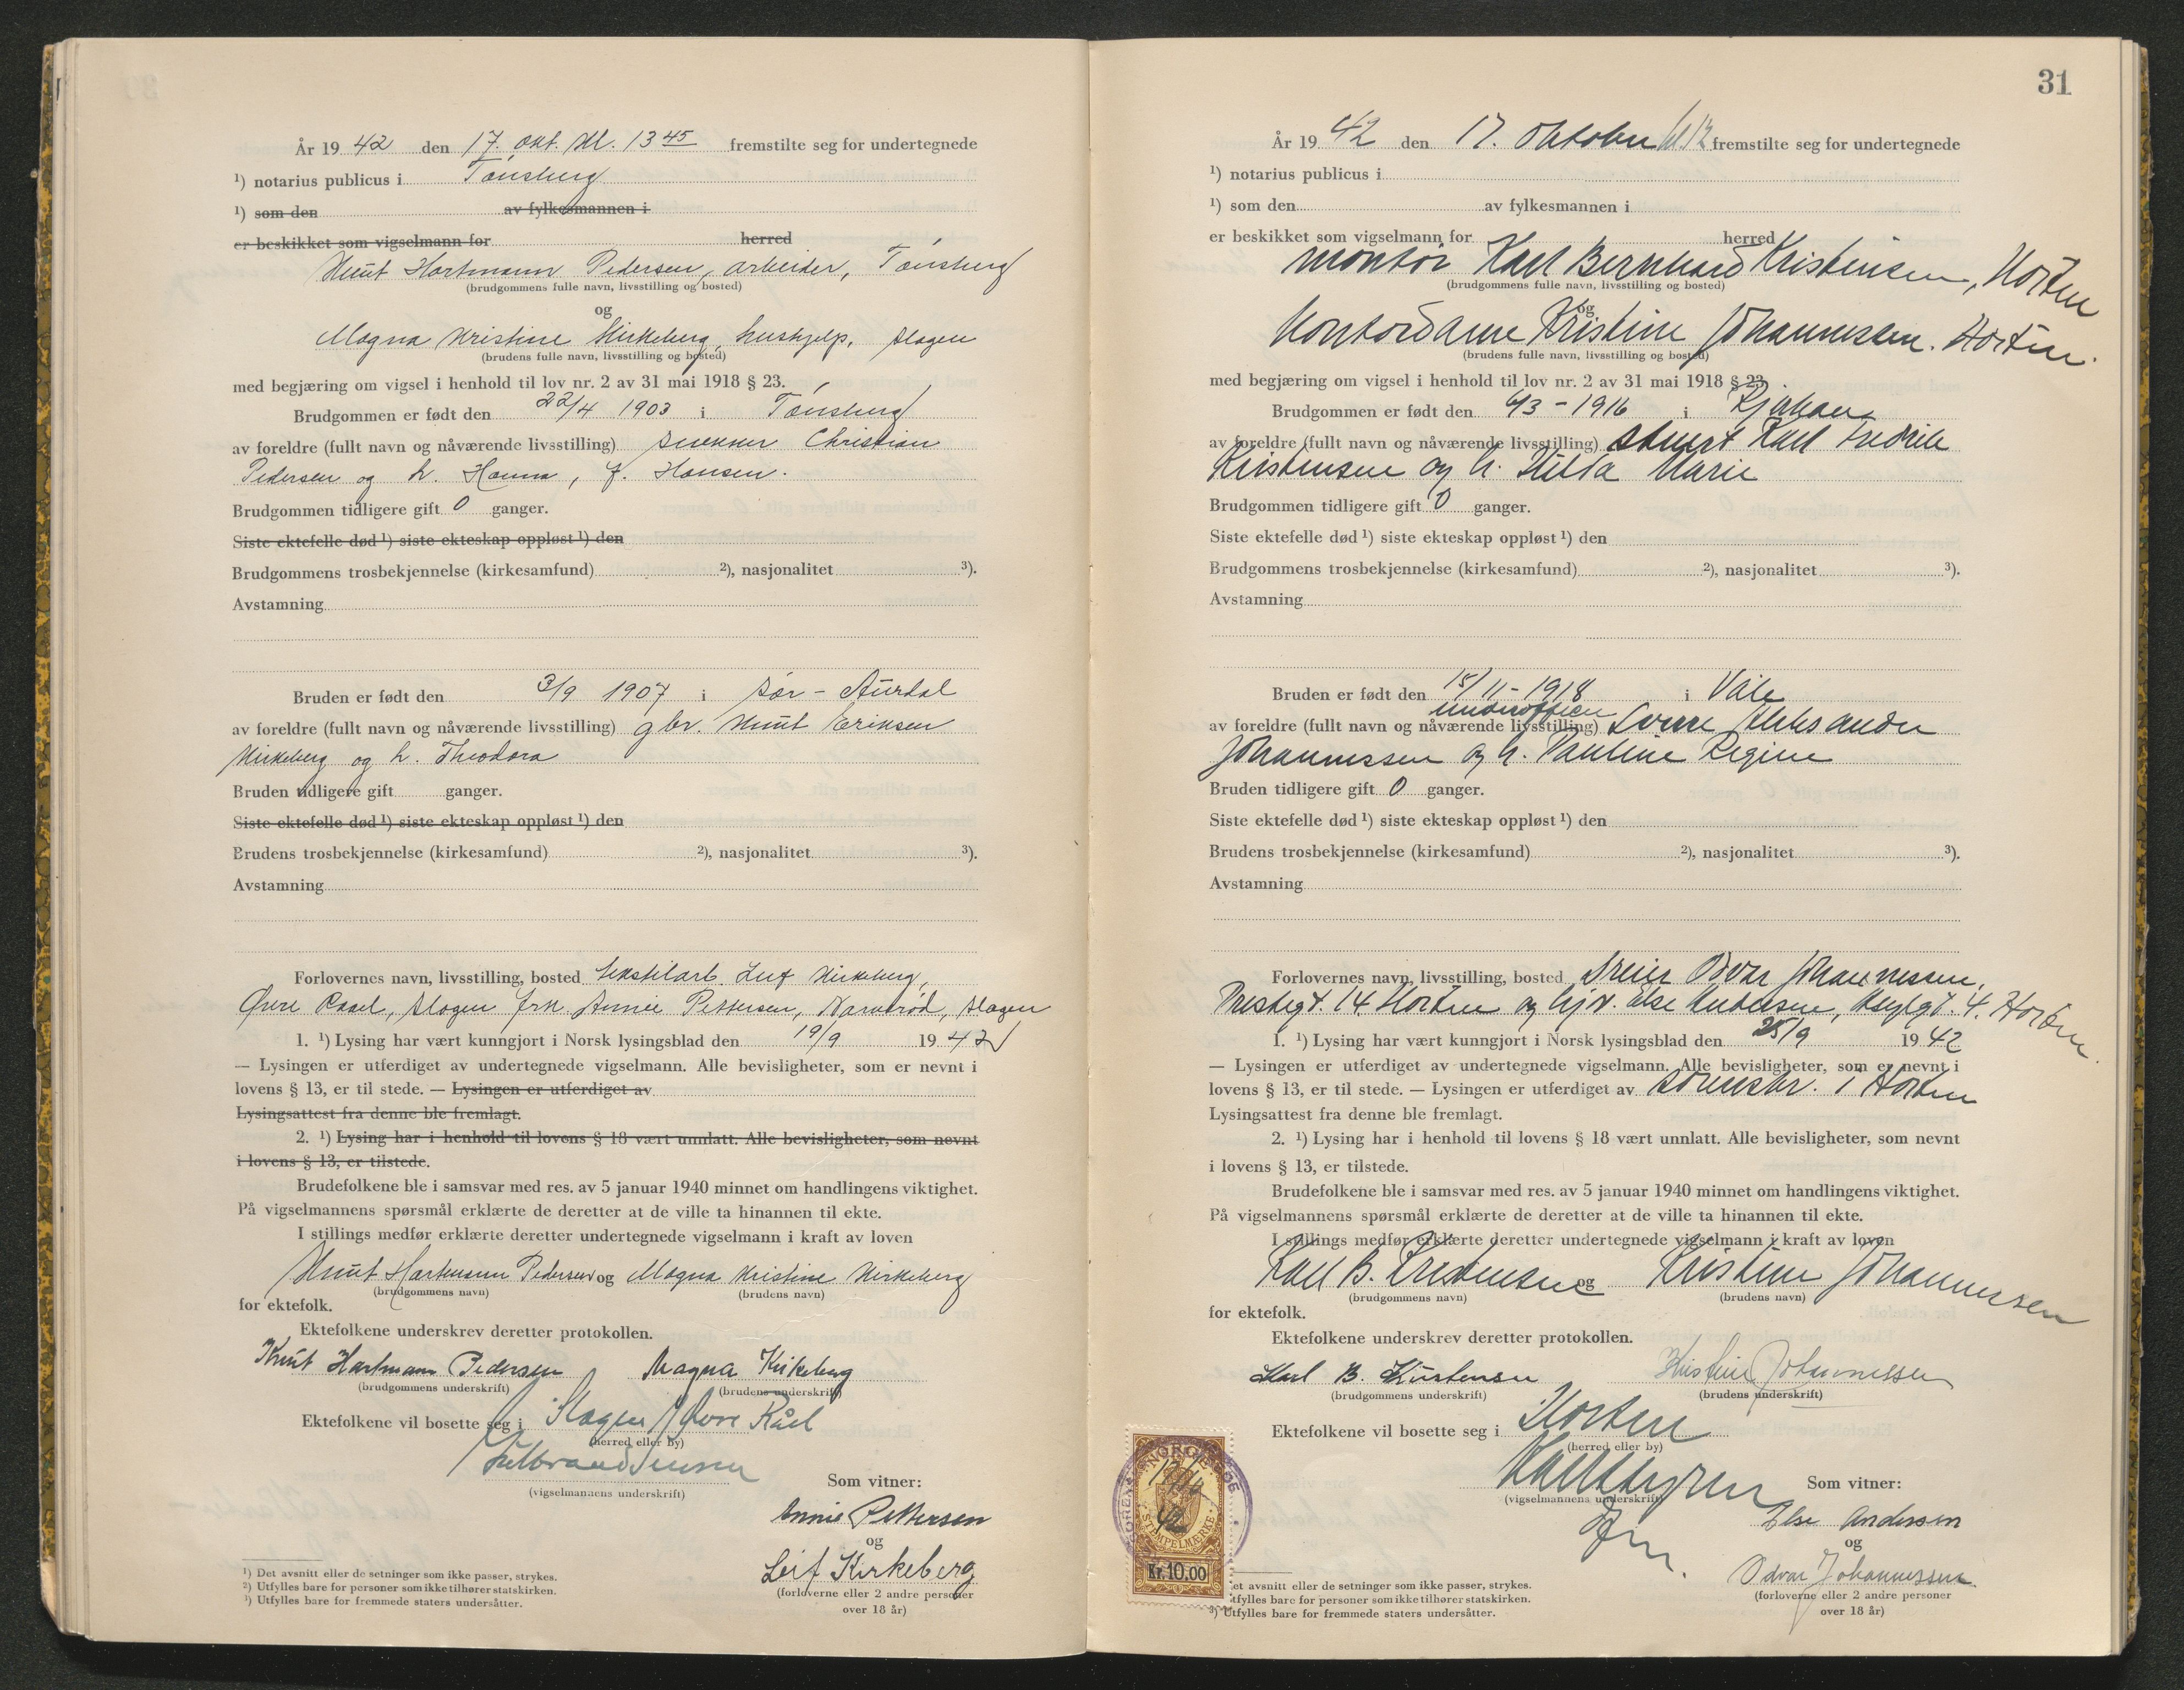 År 19 42 den 17. okt. kl. 13 45 fremstilte seg for undertegnede
¹) notarius publicus i Tønsberg
¹) som den av fylkesmannen i
er beskikket som vigselmann for herred
Knut Hartmann Pedersen, arbeider, Tønsberg
(brudgommens fulle navn, livsstilling og bosted)
og
Magna Kristine Kirkeberg, hushjelp, Slagen
(brudens fulle navn, livsstilling og bosted)
med begjæring om vigsel i henhold til lov nr. 2 av 31 mai 1918 § 23.
Brudgommen er født den 22/4 1903 i Tønsberg
av foreldre (fullt navn og nåværende livsstilling) snekker Christian
Pedersen og h. Hanna, f. Hansen.
Brudgommen tidligere gift 0 ganger.
Siste ektefelle død ¹) siste ekteskap oppløst ¹) den
Brudgommens trosbekjennelse (kirkesamfund) ²), nasjonalitet ³).
Avstamning
Bruden er født den 3/9 1907 i Sør-Aurdal
av foreldre (fullt navn og nåværende livsstilling) gbr. Knut Eriksen
Kirkeberg og h. Theodora
Bruden tidligere gift ganger.
Siste ektefelle død ¹) siste ekteskap oppløst ¹) den
Brudens trosbekjennelse (kirkesamfund) ²), nasjonalitet ³).
Avstamning
Forlovernes navn, livsstilling, bosted tekstilarb. Leif Kirkeberg,
Øvre Raael, Slagen frk. Annie Pettersen, Narverød, Slagen
1. ¹) Lysing har vært kunngjort i Norsk lysingsblad den 19/9 19 42
— Lysingen er utferdiget av undertegnede vigselmann. Alle bevisligheter, som er nevnt i
lovens § 13, er til stede. — Lysingen er utferdiget av
Lysingsattest fra denne ble fremlagt.
2. ¹) Lysing har i henhold til lovens § 18 vært unnlatt. Alle bevisligheter, som nevnt
i lovens § 13, er tilstede.
Brudefolkene ble i samsvar med res. av 5 januar 1940 minnet om handlingens viktighet.
På vigselmannens spørsmål erklærte de deretter at de ville ta hinannen til ekte.
I stillings medfør erklærte deretter undertegnede vigselmann i kraft av loven
Knut Hartmann Pedersen og Magna Kristine Kirkeberg
(brudgommens navn) (brudens navn)
for ektefolk.
Ektefolkene underskrev deretter protokollen.
Knut Hartmann Pedersen Magna Kirkeberg
(brudgommens underskrift) (brudens underskrift)
Ektefolkene vil bosette seg i Slagen, Øvre Råel
(herred eller by)
Som vitner:
(vigselmannens underskrift)
Annie Pettersen
og
Leif Kirkeberg
(forloverne eller 2 andre personer
over 18 år)
¹) Det avsnitt eller de setninger som ikke passer, strykes.
²) Utfylles bare for personer som ikke tilhører statskirken.
³) Utfylles bare for fremmede staters undersåtter.
31
År 19 42 den 17. Oktober kl. 12 fremstilte seg for undertegnede
¹) notarius publicus i
¹) som den av fylkesmannen i
er beskikket som vigselmann for herred
montør Karl Bernhard Kristensen, Horten
(brudgommens fulle navn, livsstilling og bosted)
og
Kontordame Kristine Johannessen. Horten.
(brudens fulle navn, livsstilling og bosted)
med begjæring om vigsel i henhold til lov nr. 2 av 31 mai 1918 § 23.
Brudgommen er født den 6/3 - 1916 i Rjukan
av foreldre (fullt navn og nåværende livsstilling) stuert Karl Fredrik
Kristensen og h. Hilda Marie
Brudgommen tidligere gift 0 ganger.
Siste ektefelle død ¹) siste ekteskap oppløst ¹) den
Brudgommens trosbekjennelse (kirkesamfund) ²), nasjonalitet ³).
Avstamning
Bruden er født den 15/11 - 1918 i Våle
underoffiser
av foreldre (fullt navn og nåværende livsstilling) Sverre Aleksander
Johannessen og h. Pauline Regine
Bruden tidligere gift 0 ganger.
Siste ektefelle død ¹) siste ekteskap oppløst ¹) den
Brudens trosbekjennelse (kirkesamfund) ²), nasjonalitet ³).
Avstamning
Forlovernes navn, livsstilling, bosted dreier Odvar Johannessen,
Prestegt. 14 Horten og hjv. Else Andersen, 4. Horten.
1. ¹) Lysing har vært kunngjort i Norsk lysingsblad den 25/9 19 42
— Lysingen er utferdiget av undertegnede vigselmann. Alle bevisligheter, som er nevnt i
lovens § 13, er til stede. — Lysingen er utferdiget av sorenskr. i Horten
Lysingsattest fra denne ble fremlagt.
2. ¹) Lysing har i henhold til lovens § 18 vært unnlatt. Alle bevisligheter, som nevnt
i lovens § 13, er tilstede.
Brudefolkene ble i samsvar med res. av 5 januar 1940 minnet om handlingens viktighet.
På vigselmannens spørsmål erklærte de deretter at de ville ta hinannen til ekte.
I stillings medfør erklærte deretter undertegnede vigselmann i kraft av loven
Karl B. Kristensen og Kristine Johannessen
(brudgommens navn) (brudens navn)
for ektefolk.
Ektefolkene underskrev deretter protokollen.
Karl B. Kristensen Kristine Johannessen
(brudgommens underskrift) (brudens underskrift)
Ektefolkene vil bosette seg i Horten
(herred eller by)
Som vitner:
(vigselmannens underskrift)
Else Andersen
og
Odvar Johannessen
(forloverne eller 2 andre personer
over 18 år)
NORGE
17/10
42
STEMPELMÆRKE
Kr. 10.00
et avsnitt eller de setninger som ikke passer, strykes.
tfylles bare for personer som ikke tilhører statskirken.
³) Utfylles bare for fremmede staters undersåtter.